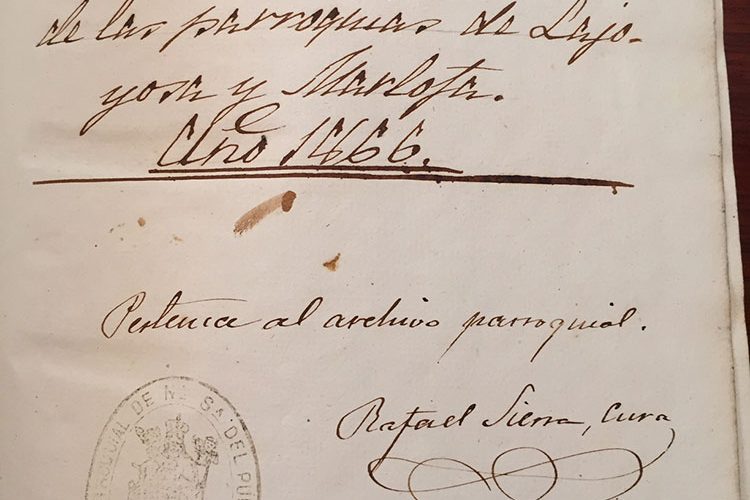 de las parroquias de Lajo-
yosa y Marlofa.
Año 1866.
Pertenece al archivo parroquial.
Rafael Sierra, Cura
DE Nª Sª DEL